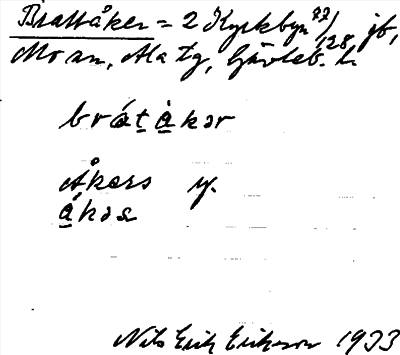 Brattåker = 2 Kyrkbyn 77/128 jb,
Mo sn, Ala tg, Gävleb. l.
brát̠à̠kər
Åkers y.
á̠kəs
Nils Erik Eriksson 1933